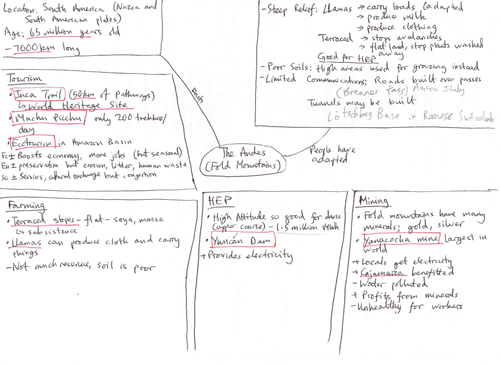 Location: South America (Nazca and
South American plates)
Age: 65 million years old
~7000km long
Facts
- Steep Relief: Llamas → carry loads (adapted
→ produce milk
→ produce clothing
Terraced → stops avalanches
→ flat land, stop plants washed
away
Good for HEP
- Poor Soils: High areas used for grazing instead
- Limited Communications: Roads built over passes
(Brenner Pass) Italy
Tunnels may be built
Lötschberg Base in Bernese
People have
adapted
The Andes
(Fold Mountains)
Tourism
• Inca Trail (50km of pathways)
↳ World Heritage Site
• Machu Picchu only 200 trekkers/
day
• Ecotourism in Amazon Basin
Ec± Boosts economy, more jobs (but seasonal)
En± preservation but erosion, litter, human waste
So ± Services, cultural exchange but congestion
Farming
• Terraced slopes - flat - soya, maize
↳ subsistence
• Llamas can produce cloth and carry
things
- Not much revenue, soil is poor
HEP
• High Altitude so good for dams
(upper course) -
• Yuncan Dam
+ Provides electricity
Mining
• Fold mountains have many
minerals; gold, silver
• Yanacocha mine largest in
world
+ Locals get electricity
+ Cajamarca benefitted
- Water polluted
+ Profits from minerals
- Unhealthy for workers